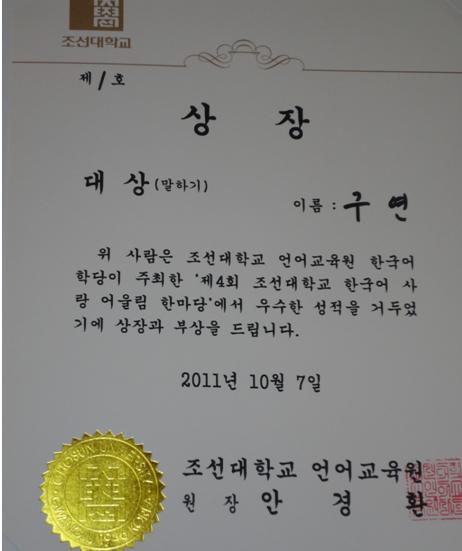 조선대학교
제 1 호
상 장
대 상 (말하기)
이름 : 구 연
위 사람은 조선대학교 언어교육원 한국어
학당이 주최한 '제4회 조선대학교 한국어 사
랑 어울림 한마당'에서 우수한 성적을 거두었
기에 상장과 부상을 드립니다.
2011년 10월 7일
조선대학교 언어교육원
원 장 안 경 환
CHOSUN UNIVERSITY